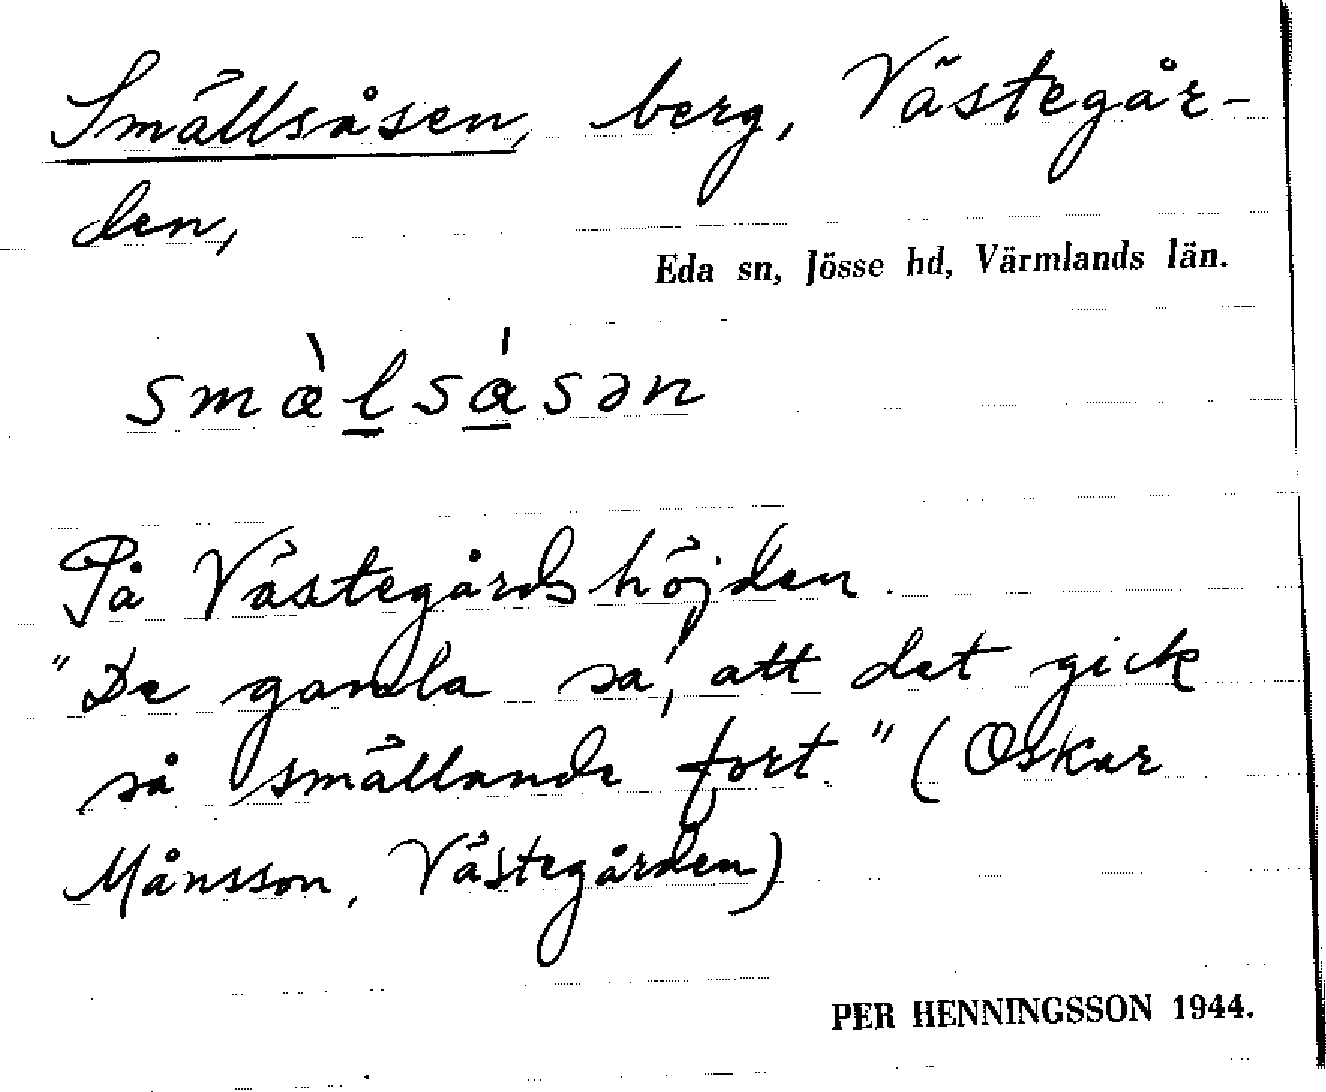 Smällsåsen, berg, Västegår-
den,
Eda sn, Jösse hd, Värmlands län.
smæ̀l̠sá̠sən
På Västegårdshöjden.
"De gamla sa, att det gick
så smällande fort." (Oskar
Månsson, Västegården)
PER HENNINGSSON 1944.